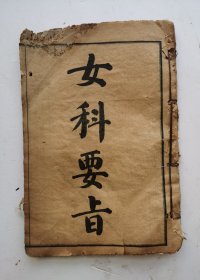 女科要旨